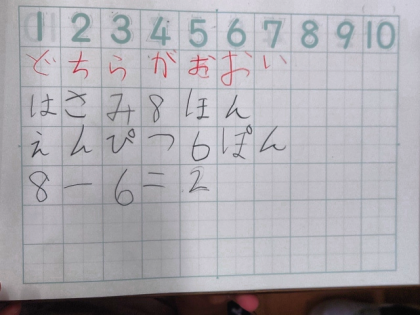 1 2 3 4 5 6 7 8 9 10
どちらがおおい
はさみ8ほん
えんぴつ6ぽん
8-6=2